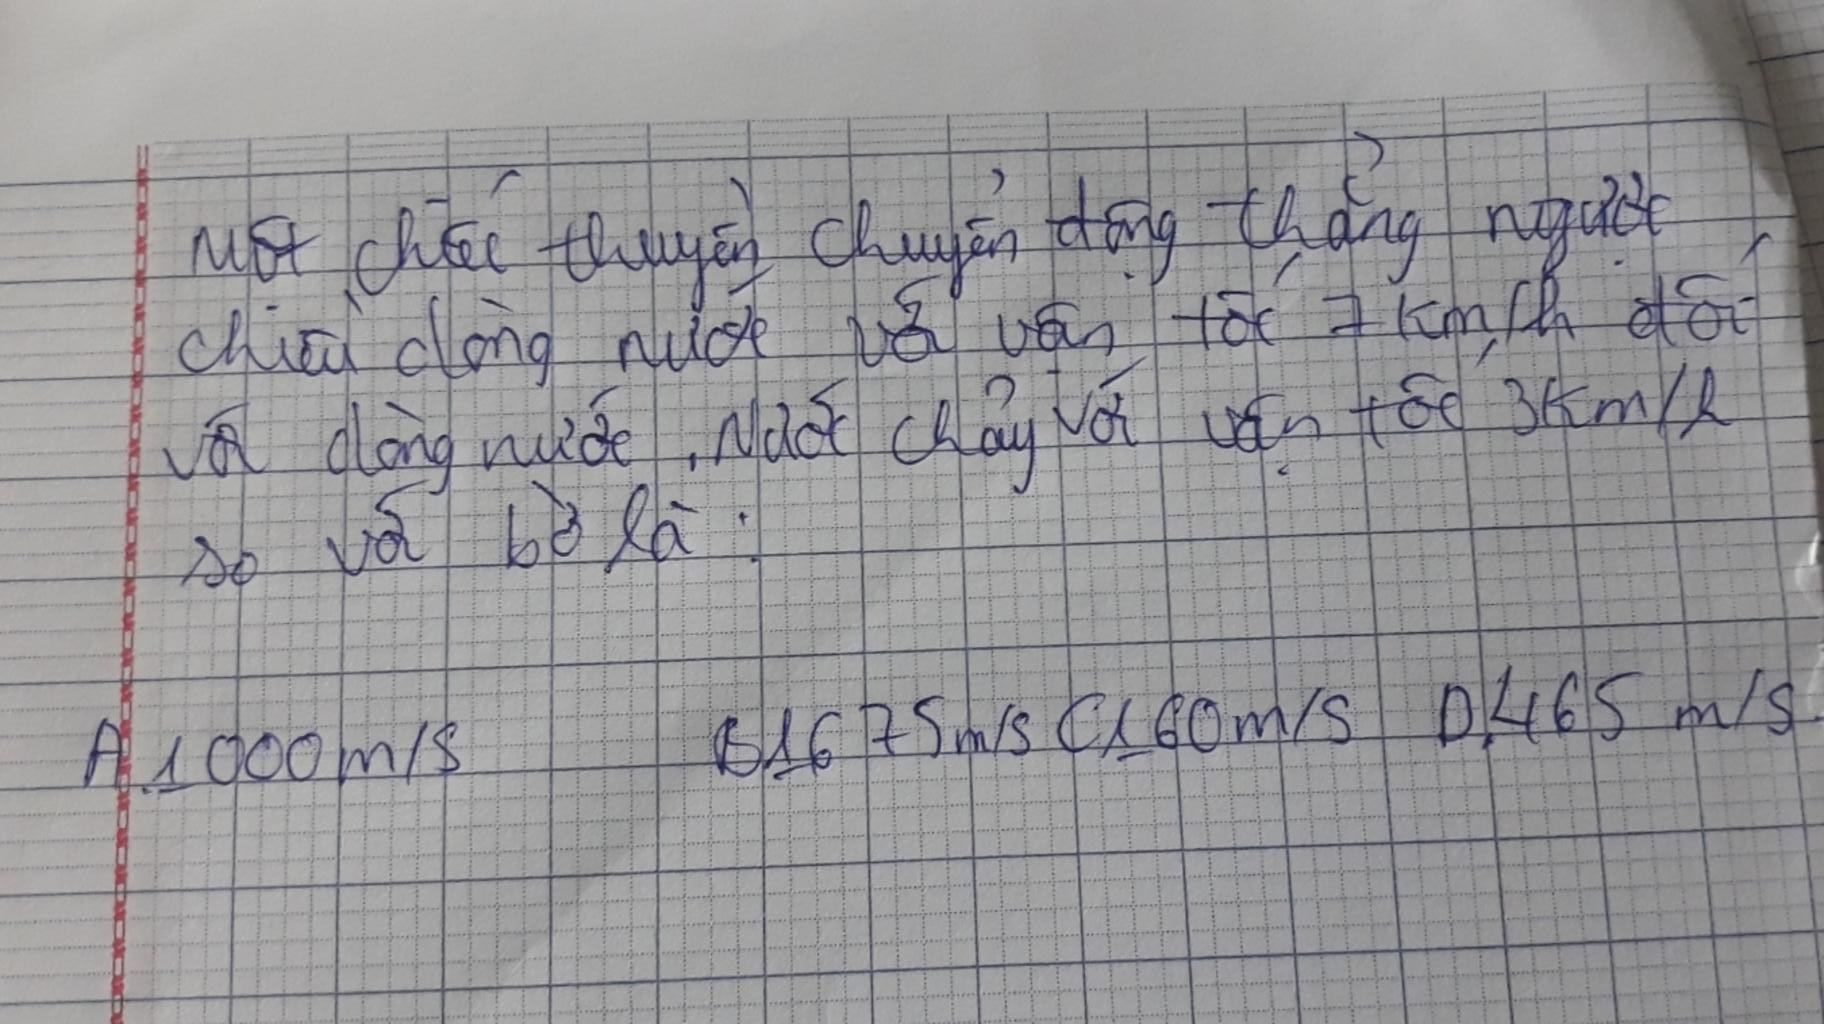 Một chiếc thuyền chuyển động thẳng ngược
chiều dòng nước với vận tốc 7 km/h đối
với dòng nước. Nước chảy với vận tốc 3km/h
so với bờ là:
A. 1000m/s B 1675m/s C 160m/s D. 465 m/s